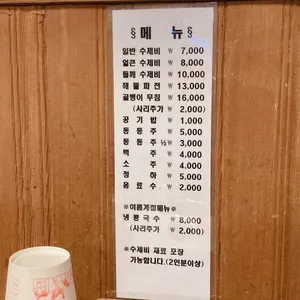 §메 뉴§
일반 수제비 ₩ 7,000
얼큰 수제비 ₩ 8,000
들깨 수제비 ₩ 10,000
해물파전 ₩ 13,000
골뱅이 무침 ₩ 16,000
(사리추가 ₩ 2,000)
공 기 밥 ₩ 1,000
동 동 주 ₩ 5,000
동 동 주 ½ ₩ 3,000
맥 주 ₩ 4,000
소 주 ₩ 4,000
청 하 ₩ 5,000
음 료 수 ₩ 2,000
※여름계절메뉴※
냉콩국수 ₩ 8,000
(사리추가 ₩ 2,000)
※수제비 재료 포장
가능합니다.(2인분이상)